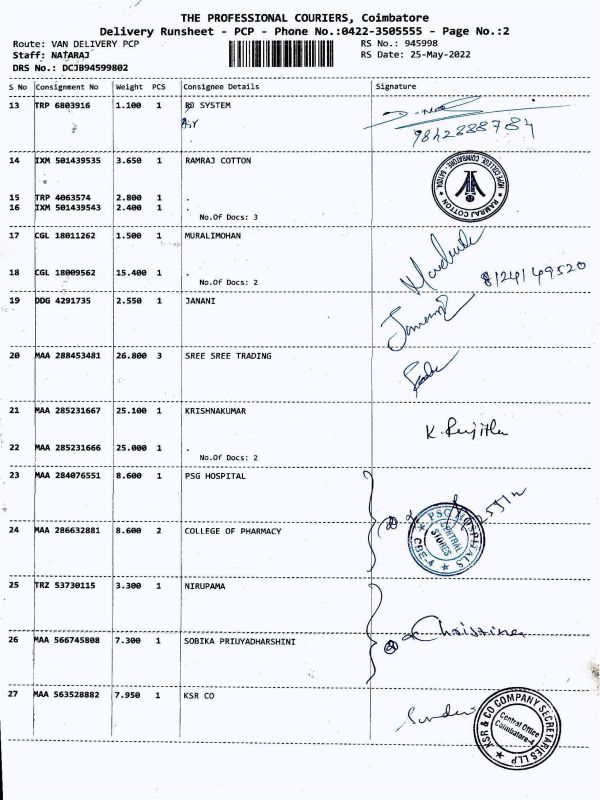 THE PROFESSIONAL COURIERS, Coimbatore
Delivery Runsheet - PCP - Phone No.:0422-3505555 - Page No.:2
Route: VAN DELIVERY PCP RS No.: 945998
Staff: NATARAJ RS Date: 25-May-2022
DRS No.: DCJB94599802
S No Consignment No Weight PCS Consignee Details Signature
13 TRP 6803916 1.100 1 RD SYSTEM
9842888784
14 IXM 501439535 3.650 1 RAMRAJ COTTON
RAMRAJ COTTON
15 TRP 4063574 2.800 1 .
16 IXM 501439543 2.400 1 .
No.Of Docs: 3
17 CGL 18011262 1.500 1 MURALIMOHAN
18 CGL 18009562 15.400 1 .
8124149520
No.Of Docs: 2
19 DDG 4291735 2.550 1 JANANI
20 MAA 288453481 26.800 3 SREE SREE TRADING
21 MAA 285231667 25.100 1 KRISHNAKUMAR
22 MAA 285231666 25.000 1 .
No.Of Docs: 2
23 MAA 284076551 8.600 1 PSG HOSPITAL
PSG HOSPITALS
CENTRAL
STORES
CBE-4
24 MAA 286632881 8.600 2 COLLEGE OF PHARMACY
25 TRZ 53730115 3.300 1 NIRUPAMA
26 MAA 566745808 7.300 1 SOBIKA PRIUYADHARSHINI
27 MAA 563528882 7.950 1 KSR CO
KSR & CO COMPANY SECRETARIES LLP
Central Office